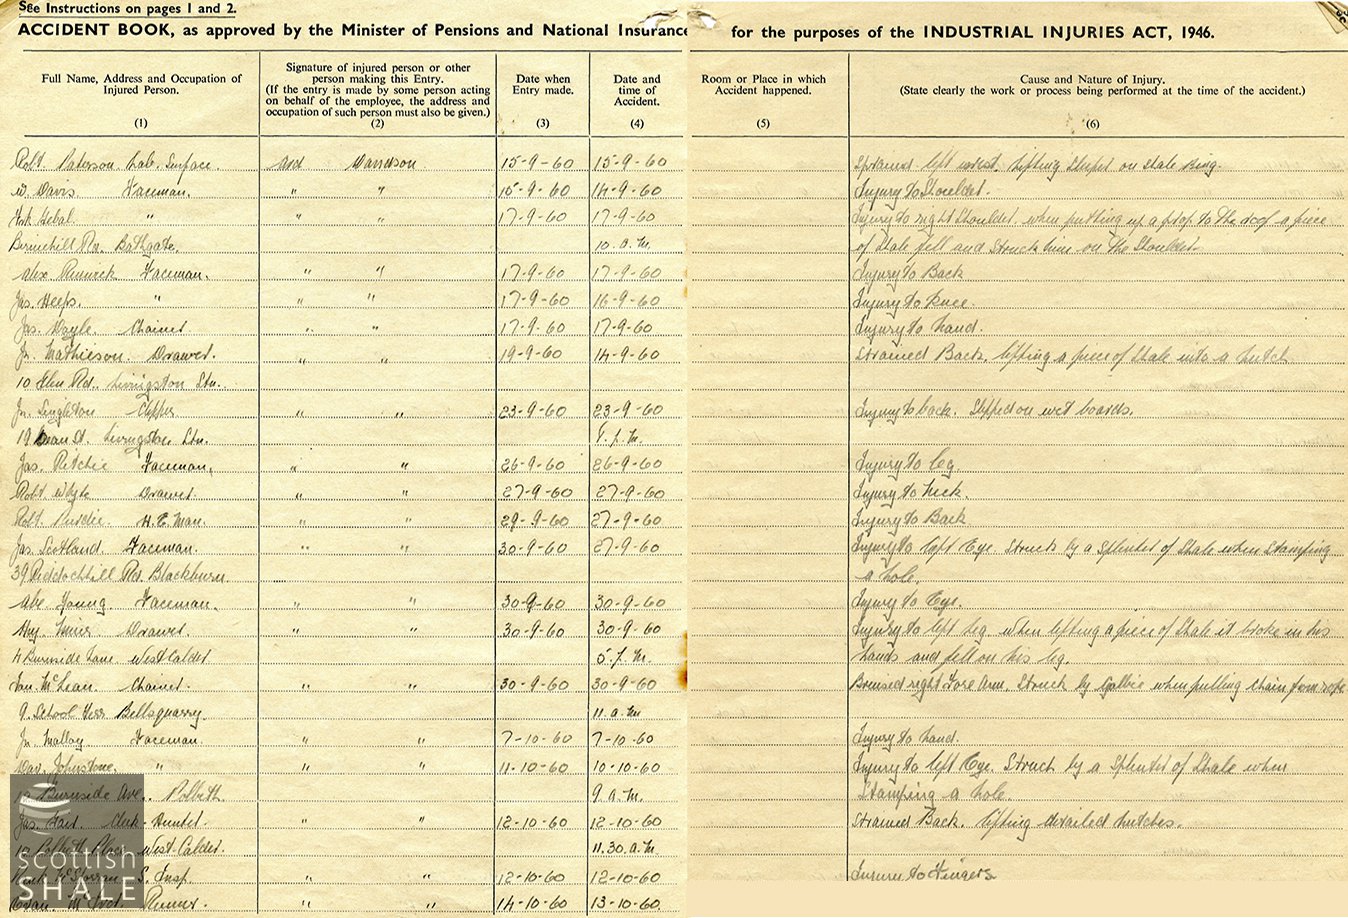 See Instructions on pages 1 and 2.
ACCIDENT BOOK, as approved by the Minister of Pensions and National Insurance for the purposes of the INDUSTRIAL INJURIES ACT, 1946.
Full Name, Address and Occupation of Injured Person. (1)
Signature of injured person or other person making this Entry. (If the entry is made by some person acting on behalf of the employee, the address and occupation of such person must also be given.) (2)
Date when Entry made. (3)
Date and time of Accident. (4)
Room or Place in which Accident happened. (5)
Cause and Nature of Injury. (State clearly the work or process being performed at the time of the accident.) (6)
Robt. Paterson Lab. Surface. 15-9-60 15-9-60 Sprained left wrist. Lifting Sleeper on Shale Bing.
W. Davis Faceman. " " 15-9-60 14-9-60 Injury to Shoulder.
" " " 17-9-60 17-9-60 Injury to right Shoulder. when putting up a prop to the roof a piece
Rd. Bathgate. 10. a.m. of Shale fell and struck him on the Shoulder
Alex Faceman. " " 17-9-60 17-9-60 Injury to Back
Jas. Heeps. " " " 17-9-60 16-9-60 Injury to knee.
Jas. Doyle. Chainer " " 17-9-60 17-9-60 Injury to hand.
Jn. Mathieson. Drawer. " " 19-9-60 14-9-60 Strained Back. lifting a piece of Shale into a hutch
10 Glen Rd. Livingston Stn..
Jn. Singleton Clipper " " 23-9-60 23-9-60 Injury to back. Slipped on wet boards.
19 St. Livingston Stn. p.m.
Jas. Ritchie Faceman. " " 26-9-60 26-9-60 Injury to leg.
Robt Whyte Drawer. " " 27-9-60 27-9-60 Injury to Neck.
Robt. Purdie. Man. " " 29-9-60 27-9-60 Injury to Back
Jas. Scotland. Faceman. " " 30-9-60 27-9-60 Injury to left Eye. Struck by a Splinter of Shale when Stamping
39 Riddochhill Rd. Blackburn a hole.
Abe Young. Faceman. " " 30-9-60 30-9-60 Injury to Eye.
Drawer. " " 30-9-60 30-9-60 Injury to left leg. when lifting a piece of Shale it broke in his
4 Burnside Lane. West Calder 5 p.m. hands and fell on his leg.
McLean. Chainer. " " 30-9-60 30-9-60 Bruised right Fore Arm. Struck by when pulling chain from rope
9. School Terr Bellsquarry. 11. a.m
Jn. Malloy Faceman. " " 7-10-60 7-10-60 Injury to hand.
Dav. Johnstone. " " " 11-10-60 10-10-60 Injury to left Eye. Struck by a Splinter of Shale when
Burnside Ave.. Polbeth 9 a.m. Stamping a hole.
Jas. " " 12-10-60 12-10-60 Strained Back. lifting derailed hutches.
West Calder. 11.30.a.m
S. Insp. " " 12-10-60 12-10-60 Injury to Fingers
" " 14-10-60 13-10-60.
scottish
SHALE